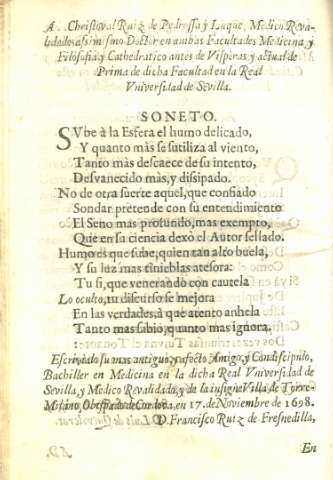 A Christoval Ruiz de Pedrossa y Luque, Medico Reva-
lidado, Doctor en ambas Facultades Medicina, y
Filosofia, y Cathedratico antes de Visperas, y actual de
Prima de dicha Facultad en la Real
Vniversidad de Sevilla.
SONETO.
SVbe à la Esfera el humo delicado,
Y quanto màs se sutiliza al viento,
Tanto màs descaece de su intento,
Desvanecido màs, y dissipado.
No de otra suerte aquel, que confiado
Sondar pretende con su entendimiento
El Seno mas profundo, mas exempto,
Que en su ciencia dexò el Autor sellado.
Humo es que sube, quien tan alto buela,
Y su luz mas tinieblas atesora:
Tu si, que venerando con cautela
Lo oculto, tu discurso se mejora
En las verdades, à que atento anhela
Tanto mas sabio, quanto mas ignora.
Escrivialo su mas antiguo, y afecto Amigo, y Condiscipulo,
Bachiller en Medicina en la dicha Real Vniversidad de
Sevilla, y Medico Revalidado, y de la insigne Villa de Torre-
Milano, Obispado de Cordova, en 17. de Noviembre de 1698.
D. Francisco Ruiz de Fresnedilla,
En